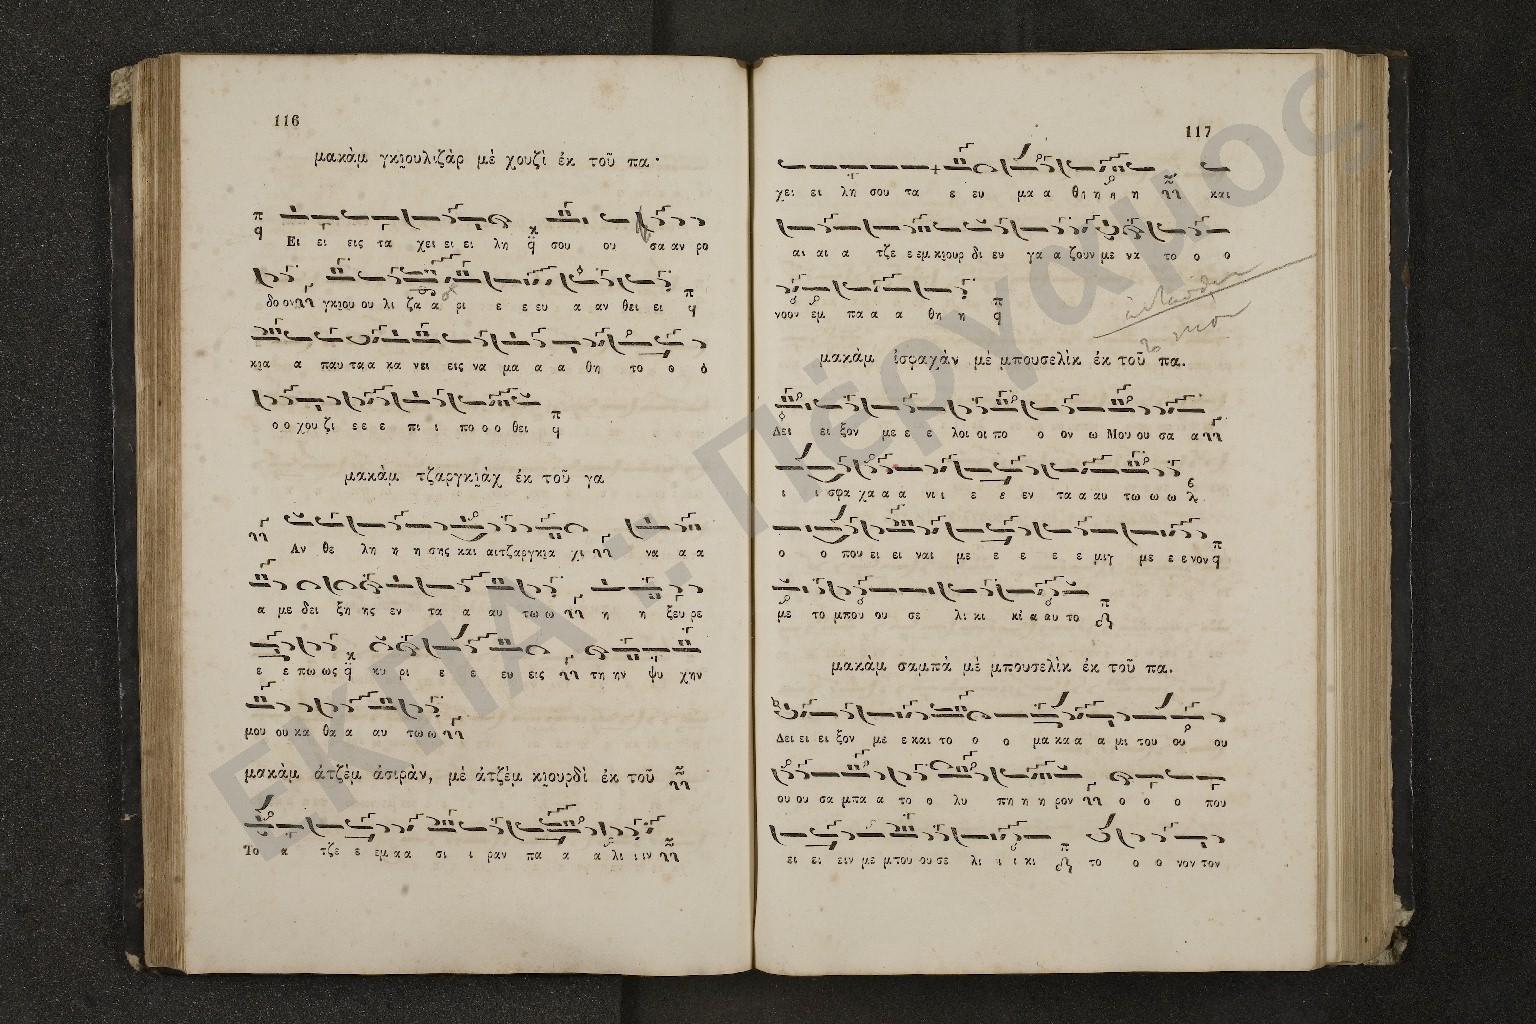 116
μακὰμ γκιουλιζὰρ μὲ χουζὶ ἐκ τοῦ πα·
Ει ει εις τα χει ει ει λη σου ου σα αν ρο
δο ον γκιου ου λι ζα α ρι ε ε ευ α αν θει ει
κια α παυ τα α κα νει εις να μα α α θη το ο ὁ
ο ο χου ζι ε ε ε πι ι πο ο ο θει
μακὰμ τζαργκιὰχ ἐκ τοῦ γα
Αν θε λη η η σης και αι τζαργκια χι να α α
α με δει ξη ης εν τα α αυ τω ω η η ξευ ρε
ε ε πω ως κυ ρι ε ε ευ εις τη ην ψυ χην
μου ου κα θα α αυ τω ω
μακὰμ ἀτζὲμ ἀσιρὰν, μὲ ἀτζὲμ κιουρδὶ ἐκ τοῦ
Το α τζε ε εμ α α σι ι ραν πα α α λι ι ιν
117
χει ει λη σου τα ε ευ μα α θη η η η και
αι αι α τζε ε εμ κιουρ δι ευ γα α ζουν με να το ο ο
νοον εμ πα α α θη η
μακὰμ ἰσφαχὰν μὲ μπουσελὶκ ἐκ τοῦ πα.
Δει ει ξον με ε ε λοι οι πο ο ον ω Μου ου σα α
ι ι σφα χα α α νι ι ε ε εν τα α αυ τω ω ω
ο ο που ει ει ναι με ε ε ε ε μιγ με ε ε νον
μὲ το μπου ου σε λι κι κι α αυ το
μακὰμ σαμπὰ μὲ μπουσελὶκ ἐκ τοῦ πα.
Δει ει ει ξον με ε και το ο ο μα κα α α μι του ου ου
ου ου σα μπα α το ο λυ πη η η ρον ο ο ο που
ει ει ειν με μπου ου σε λι ι ι κι το ο ο νον τον
ΕΚΠΑ .: Πέργαμος